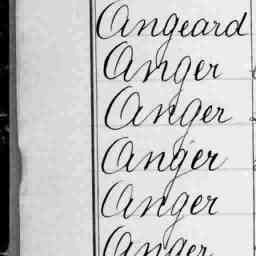 Angeard
Anger
Anger
Anger
Anger
Anger